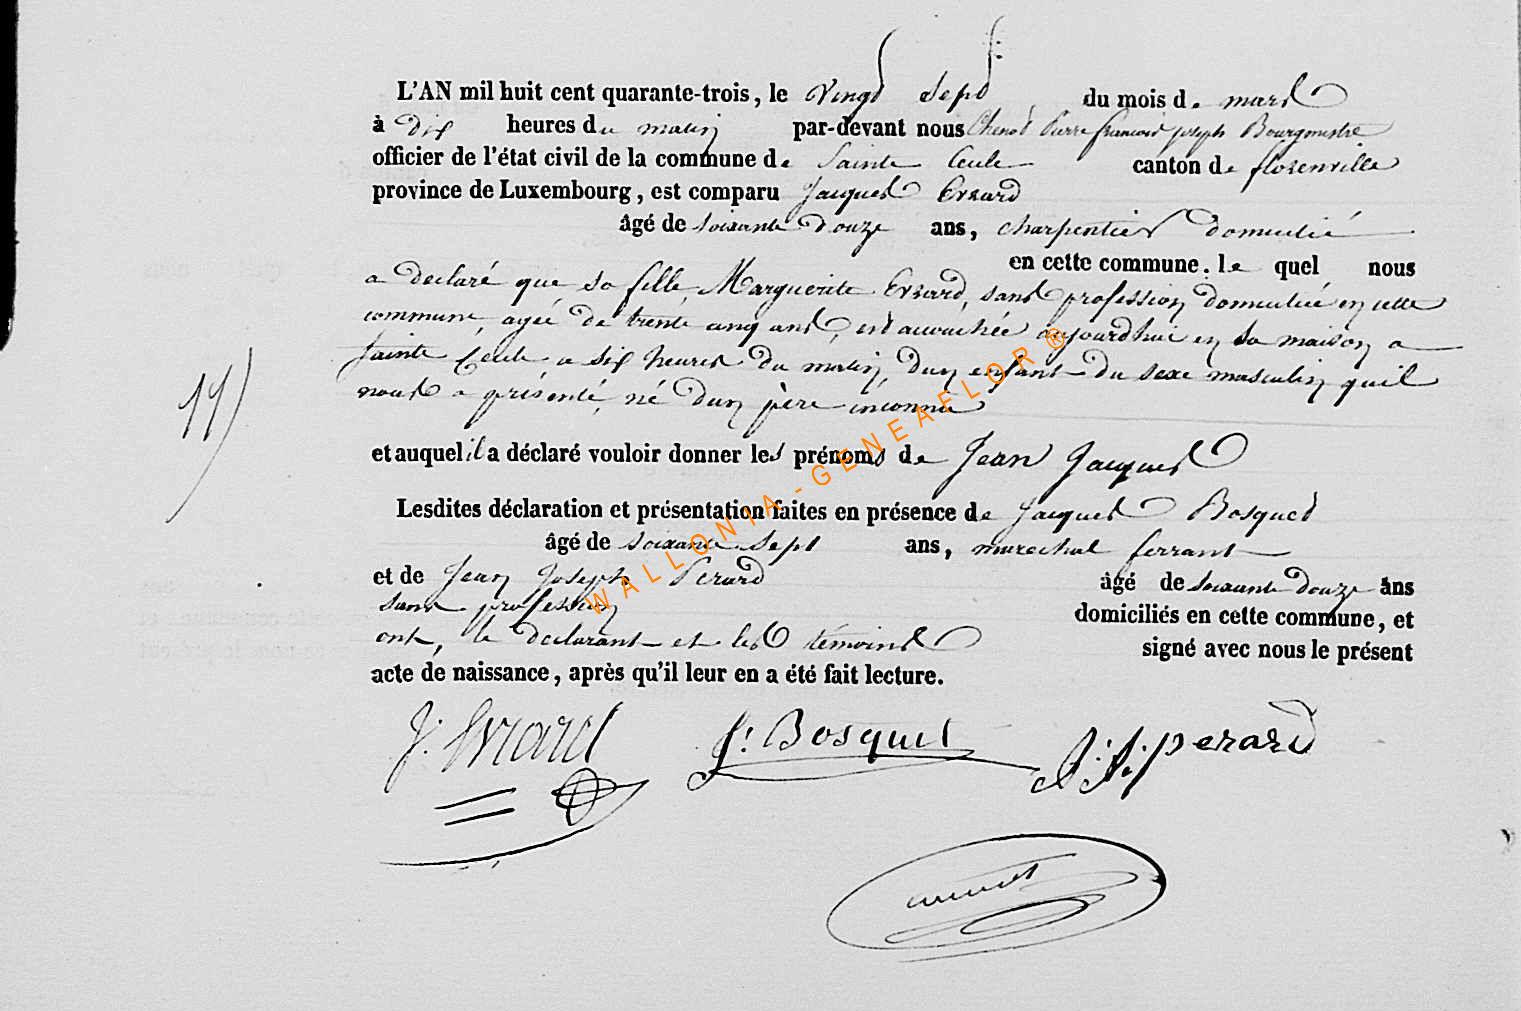 L'AN mil huit cent quarante-trois, le vingt sept du mois de mars
à dix heures du matin par-devant nous Chenot Pierre françois joseph Bourgmestre
officier de l'état civil de la commune de Sainte Cecile canton de florenville
province de Luxembourg, est comparu Jacques Evrard
âgé de soixante douze ans, charpentier domicilié
en cette commune. le quel nous
a declaré que sa fille Marguerite Evrard, sans profession domiciliée en cette
commune, agée de trente cinq ans, est accouchée aujourdhui en sa maison a
Sainte Cecile a six heures du matin, dun enfant du sexe masculin quil
nous a présenté, né dun père inconnu
11)
et auquel il a déclaré vouloir donner les prénoms de Jean Jacques
Lesdites déclaration et présentation faites en présence de Jacques Bosquet
âgé de soixante sept ans, marechal ferrant
et de Jean Joseph Perard âgé de soixante douze ans
sans profession domiciliés en cette commune, et
ont, le declarant et les témoins signé avec nous le présent
acte de naissance, après qu'il leur en a été fait lecture.
J. Evrard J. Bosquet J. J. perard
WALLONIA-GENEAFLOR®